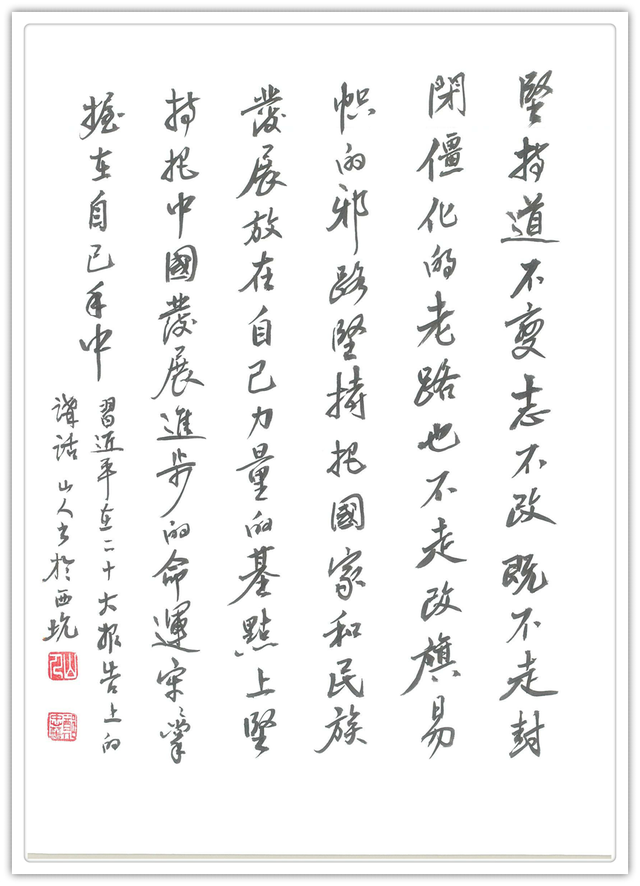 堅持道不變志不改既不走封
閉僵化的老路也不走改旗易
幟的邪路堅持把國家和民族
發展放在自己力量的基點上堅
持把中國發展進步的命運牢々掌
握在自己手中
習近平在二十大报告上的
講話 山人书於西坑
山人